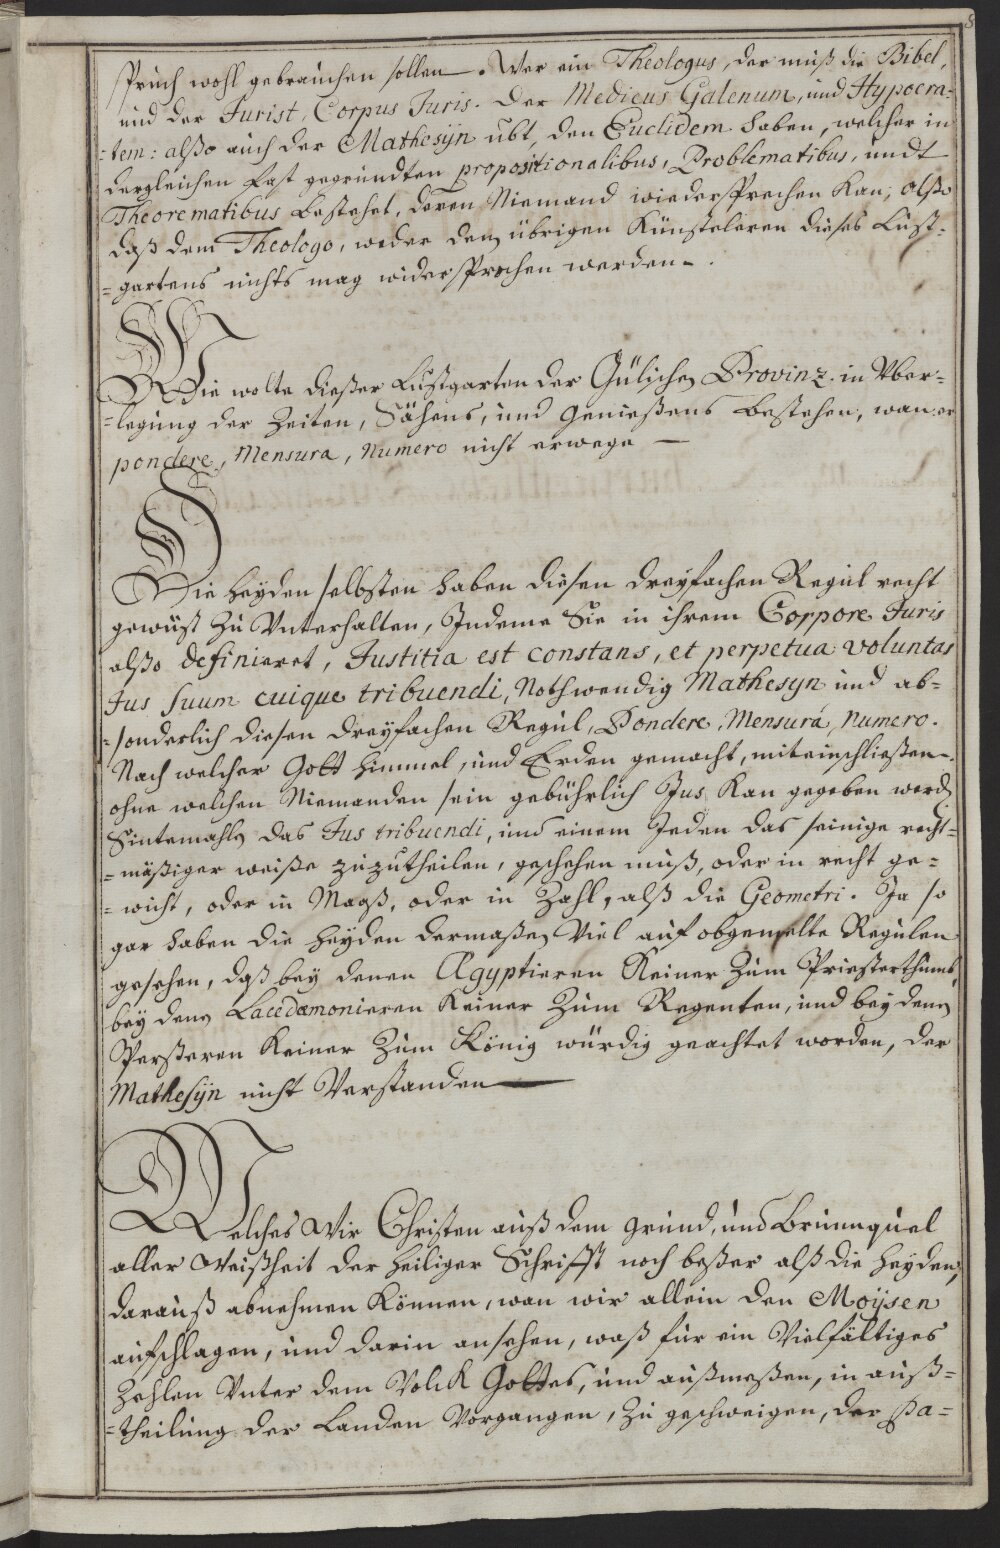 8
spruch wohl gebrauchen sollen. Wer ein Theologus, der muß die Bibel,
und der Jurist, Corpus Juris. Der Medicus Galenum, und Hypocra-
=tem: alßo auch der Mathesijn übt, den Euclidem haben, welcher in
dergleichen fast gegründten propositionalibus, Problematibus, undt
Theorematibus bestehet, deren Niemand wiedersprechen kan; alßo
daß dem Theologo, weder den übrigen Künsteleren dieses Lust-
=gartens nichts mag widersprochen werden.
Wie wolte dießer Lustgarten der Gülichen Provinz in Vber-
=legung der Zeiten, Sähens, und Genießens bestehen, wan er
pondere, Mensura, Numero nicht erwege
Die Heyden selbsten haben diesen dreyfachen Regul recht
gewust zu Vnterhalten, Indeme Sie in ihrem Corpore Juris
alßo definieret, Justitia est constans, et perpetua voluntas
Jus suum cuique tribuendi, Nothwendig Mathesyn und ab-
=sonderlich diesen dreyfachen Regul, Pondere, Mensurá, Numero.
Nach welcher Gott Himmel, und Erden gemacht, miteinschließen
ohne welchen Niemanden sein gebührlich Jus kan gegeben werden
Sintemahlen das Jus tribuendi, und einem Jeden das seinige recht-
=mäßiger weiße zuzutheilen, geschehen muß, oder in recht ge=
=wicht, oder in Maaß, oder in Zahl, alß die Geometri. Ja so
gar haben die Heyden dermaßen Viel auf obgemelte Regulen
gesehen, daß bey denen Ægyptieren Keiner Zum Priesterthumb,
bey denen Lacedæmonieren Keiner Zum Regenten, und bey denen
Perßeren Keiner Zum König würdig geachtet worden, der
Mathesijn nicht Verstanden
Welches Wir Christen auß dem grund, und Brunnquel
aller Weißheit der Heiliger Schrifft noch beßer alß die Heyden,
darauß abnehmen Können, wan wir allein den Moÿsen
aufschlagen, und darin ansehen, waß für ein Vielfältiges
Zehlen Vnter dem Volck Gottes, und außmeßen, in auß-
=theilung der Landen Vorgangen, Zu geschweigen, der Pa=